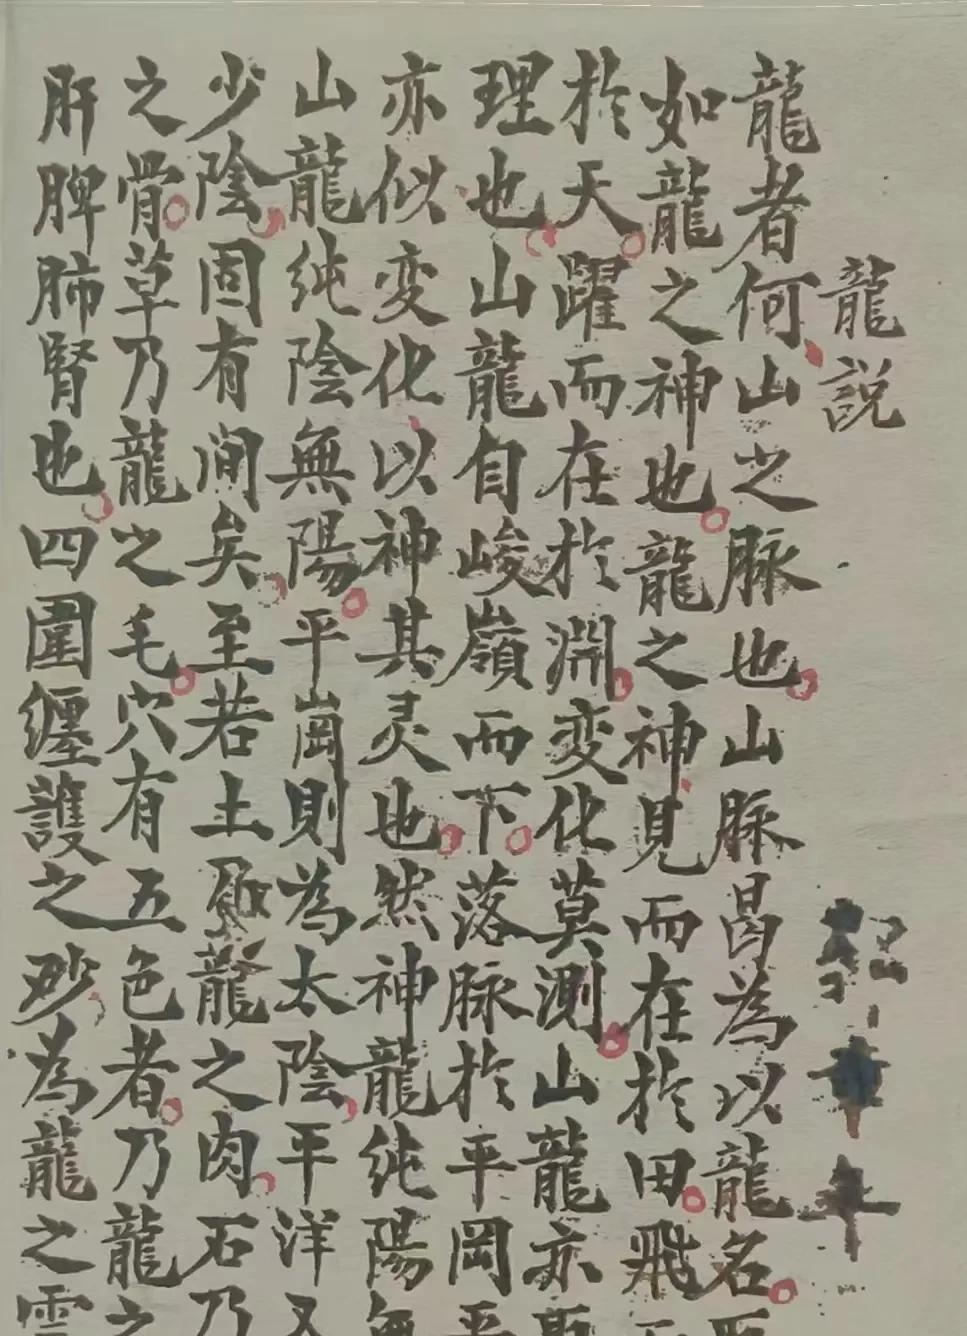 龍說
龍者何山之脉也山脉曷為以龍名
如龍之神也龍之神見而在於田飛
於天躍而在於淵変化莫測山龍亦
理也山龍自峻嶺而下落脉於平岡
亦似变化以神其灵也然神龍纯陽
山龍纯陰無陽平崗則為太陰平洋又
少陰固有间矣至若土爲龍之肉石乃
之骨草乃龍之毛穴有五色者乃龍之
肝脾肺腎也四圍纏護之砂為龍之雲